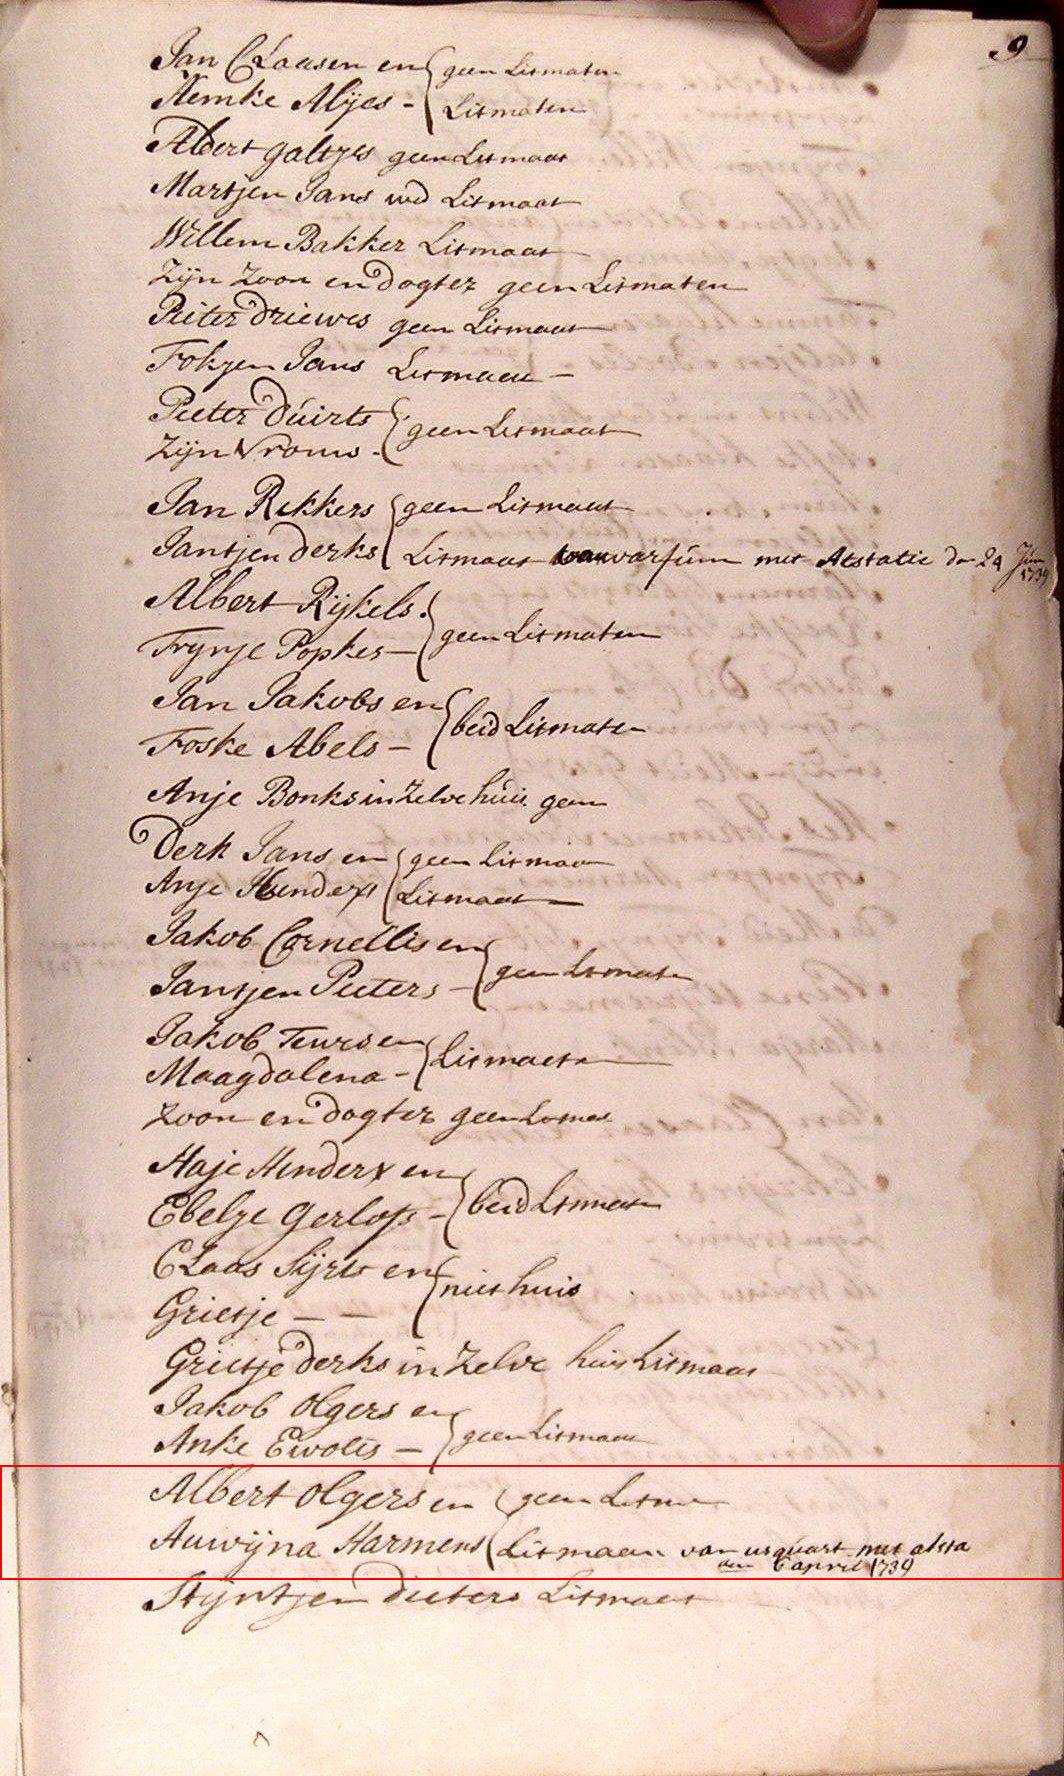 9
Jan Claasen en { geen Litmaten
Aemke Alyes - { Litmaten
Albert galtzes geen Litmaat
Martjen Jans wd Litmaat
Willem Bakker Litmaat
Zijn Zoon en dogter geen Litmaten
Peiter driewes geen Litmaat
Fokjen Jans Litmaat -
Peeter dúirts { geen Litmaat
Zijn Vrouw -
Jan Rikkers { geen Litmaat
Jantjen derks { Litmaat van warfúm met Atstatie den 24 Jún 1739
Albert Rijkels { geen Litmaten
Trynje Popkes -
Jan Jakobs en { beid Litmaten
Foske Abels -
Anje Bonks in zelve húis geen
Derk Jans en { geen Litmaat
Anje Henderx { Litmaat
Jakob Cornellis en { geen Litmaten
Jantjen Peeters -
Jakob Teurs en { Litmaeten
Maagdalena -
zoon en dogter geen
Haje Henderx en { beid Litmaten
Ebelye Gerlofs -
Claas Sijrts en { niet huis
Grietje - -
Grietje derks in zelve huis Litmaat
Jakob Olgers en { geen Litmaat
Anke Ewolts -
Albert Olgers en { geen Litma
Auwijna Harmens { Litmaan van usquart met atsta
den 6 april 1739
Stijntjen dieters Litmaat